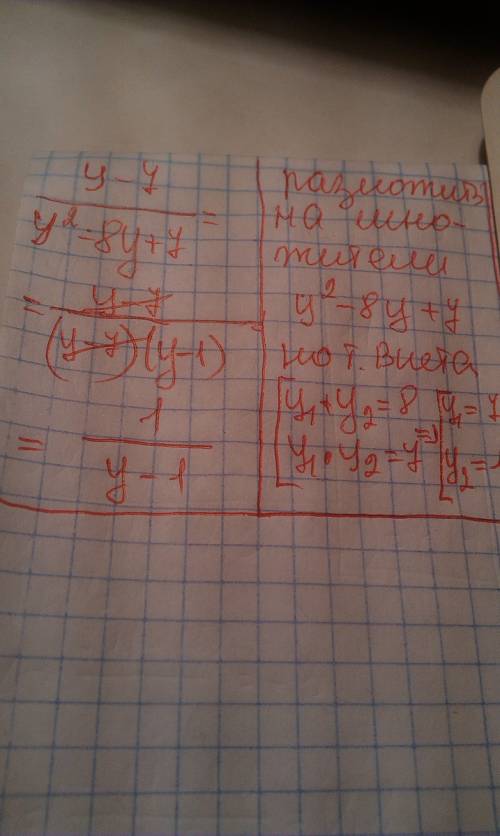 y - 7
y² - 8y + 7 =
= y - 7
(y - 7)(y - 1)
= 1
y - 1
разложить
на мно-
жители
y² - 8y + 7
по т. Виета
[y₁ + y₂ = 8 [y₁ = 7
y₁ · y₂ = 7 => y₂ = 1